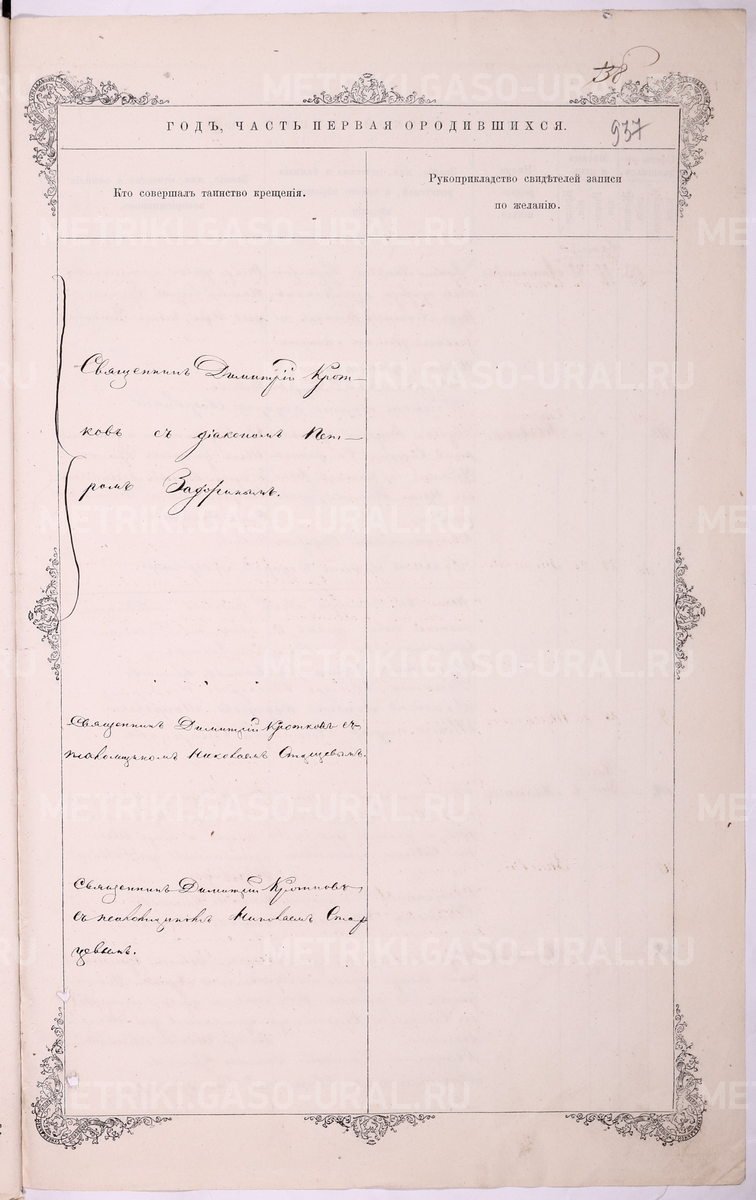 38
937
ГОДЪ, ЧАСТЬ ПЕРВАЯ ОРОДИВШИХСЯ.
Кто совершалъ таинство крещенія.
Рукоприкладство свидѣтелей записи
по желанію.
Священникъ Димитрій Крот-
ковъ съ діакономъ Пет-
ромъ
Священникъ Димитрій Кротковъ съ
псаломщикомъ Николаемъ Старцевымъ.
Священникъ Димитрій Кротковъ
съ псаломщикомъ Николаемъ Стар
цевымъ.
METRIKI.GASO-URAL.RU